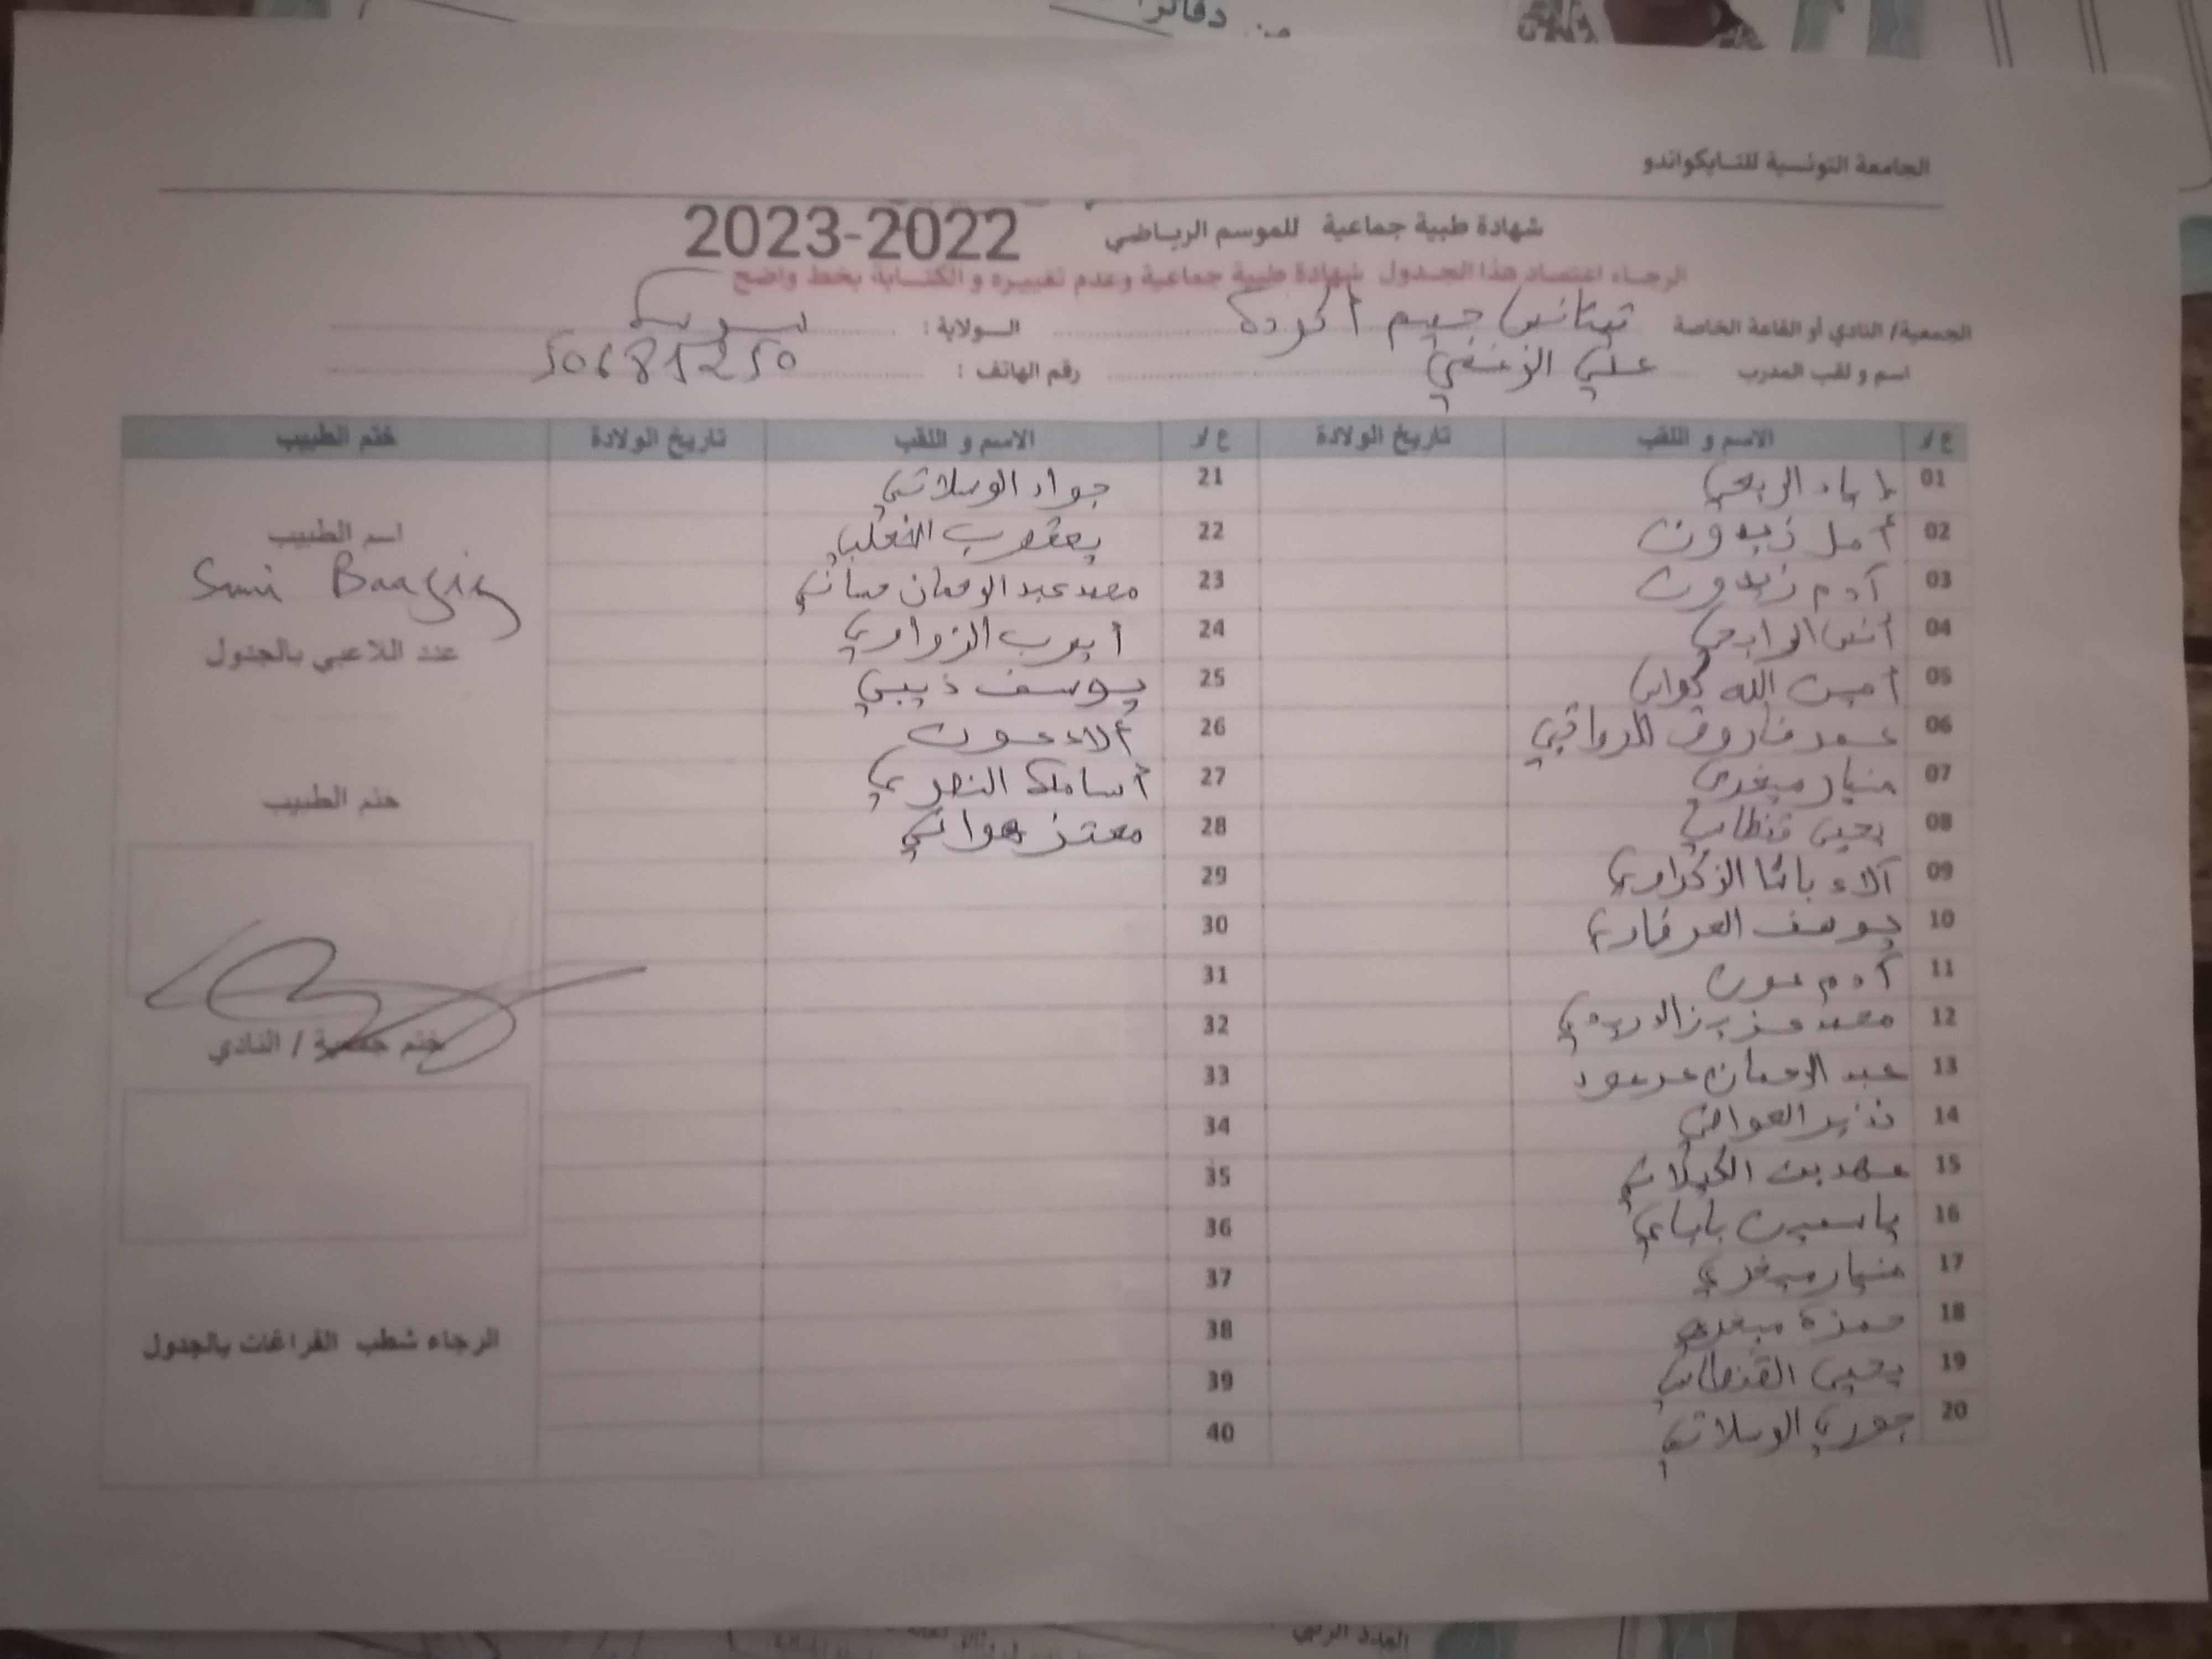 الجامعة التونسية للتايكواندو
شهادة طبية جماعية للموسم الرياضي 2022-2023
الرجاء اعتماد هذا الجدول شهادة طبية جماعية وعدم تغييره و الكتابة بخط واضح
الجمعية/ النادي أو القاعة الخاصة تيتانس جيم أكودة الولاية : سوسة
اسم و لقب المدرب علي رقم الهاتف : 50681250
ع/د الاسم و اللقب تاريخ الولادة ع/د الاسم و اللقب تاريخ الولادة ختم الطبيب
01 إياد الربحي 21 جواد الوسلاتي
02 أمل زيدون 22 يعقوب
اسم الطبيب
03 آدم زيدون 23 محمد عبد الرحمان
04 أنس الرابحي 24 أيوب الزواري
عدد اللاعبي بالجدول
05 أمين الله 25 يوسف ذيبي
06 عمر فاروق 26 ألاء عون
07 منيار ميغري 27 أسامة
ختم الطبيب
08 يحيى 28 معتز هواني
09 آلاء باشا الزكراوي 29
10 يوسف 30
11 آدم عون 31
12 محمد عزيز 32
ختم جمعية / النادي
13 عبد الرحمان 33
14 نذير العواني 34
15 بن 35
16 ياسمين باباي 36
17 منيار ميغري 37
18 حمزة ميغري 38
الرجاء شطب الفراغات بالجدول
19 يحيى 39
20 جوري الوسلاتي 40